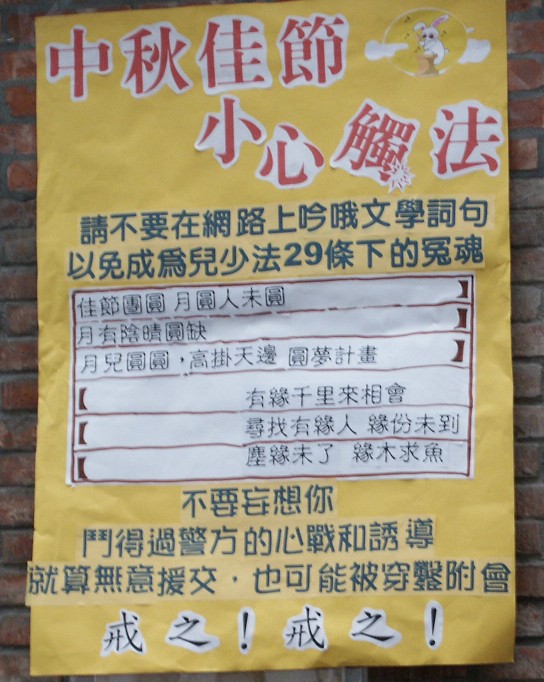 中秋佳節
小心觸法
請不要在網路上吟哦文學詞句
以免成為兒少法29條下的冤魂
佳節團圓 月圓人未圓
月有陰晴圓缺
月兒圓圓,高掛天邊 圓夢計畫
有緣千里來相會
尋找有緣人 緣份未到
塵緣未了 緣木求魚
不要妄想你
鬥得過警方的心戰和誘導
就算無意援交.也可能被穿鑿附會
戒之!戒之!